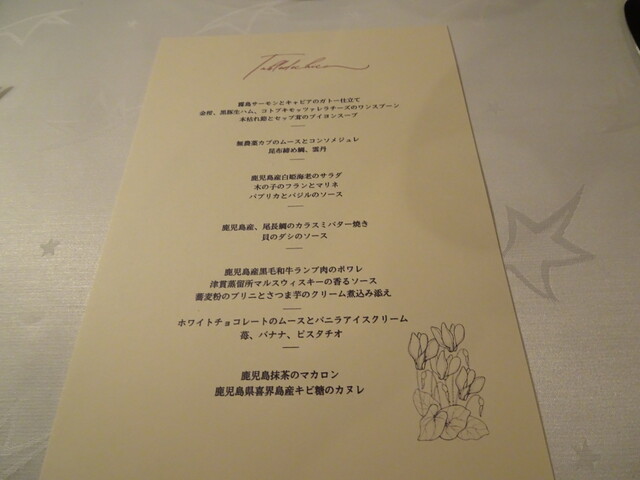 霧島サーモンとキャビアのガトー仕立て
金柑、黒豚生ハム、コトブキモッツァレラチーズのワンスプーン
本枯れ節とセップ茸のブイヨンスープ
無農薬カブのムースとコンソメジュレ
昆布締め鯛、雲丹
鹿児島産白姫海老のサラダ
木の子のフランとマリネ
パプリカとバジルのソース
鹿児島産、尾長鯛のカラスミバター焼き
貝のダシのソース
鹿児島産黒毛和牛ランプ肉のポワレ
津貫蒸留所マルスウィスキーの香るソース
蕎麦粉のブリニとさつま芋のクリーム煮込み添え
ホワイトチョコレートのムースとバニラアイスクリーム
苺、バナナ、ピスタチオ
鹿児島抹茶のマカロン
鹿児島県喜界島産キビ糖のカヌレ